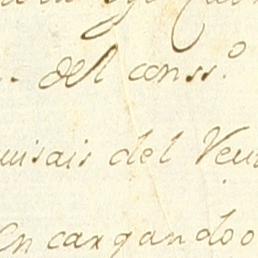 del conss.º
uisais del Veu
En cargando o